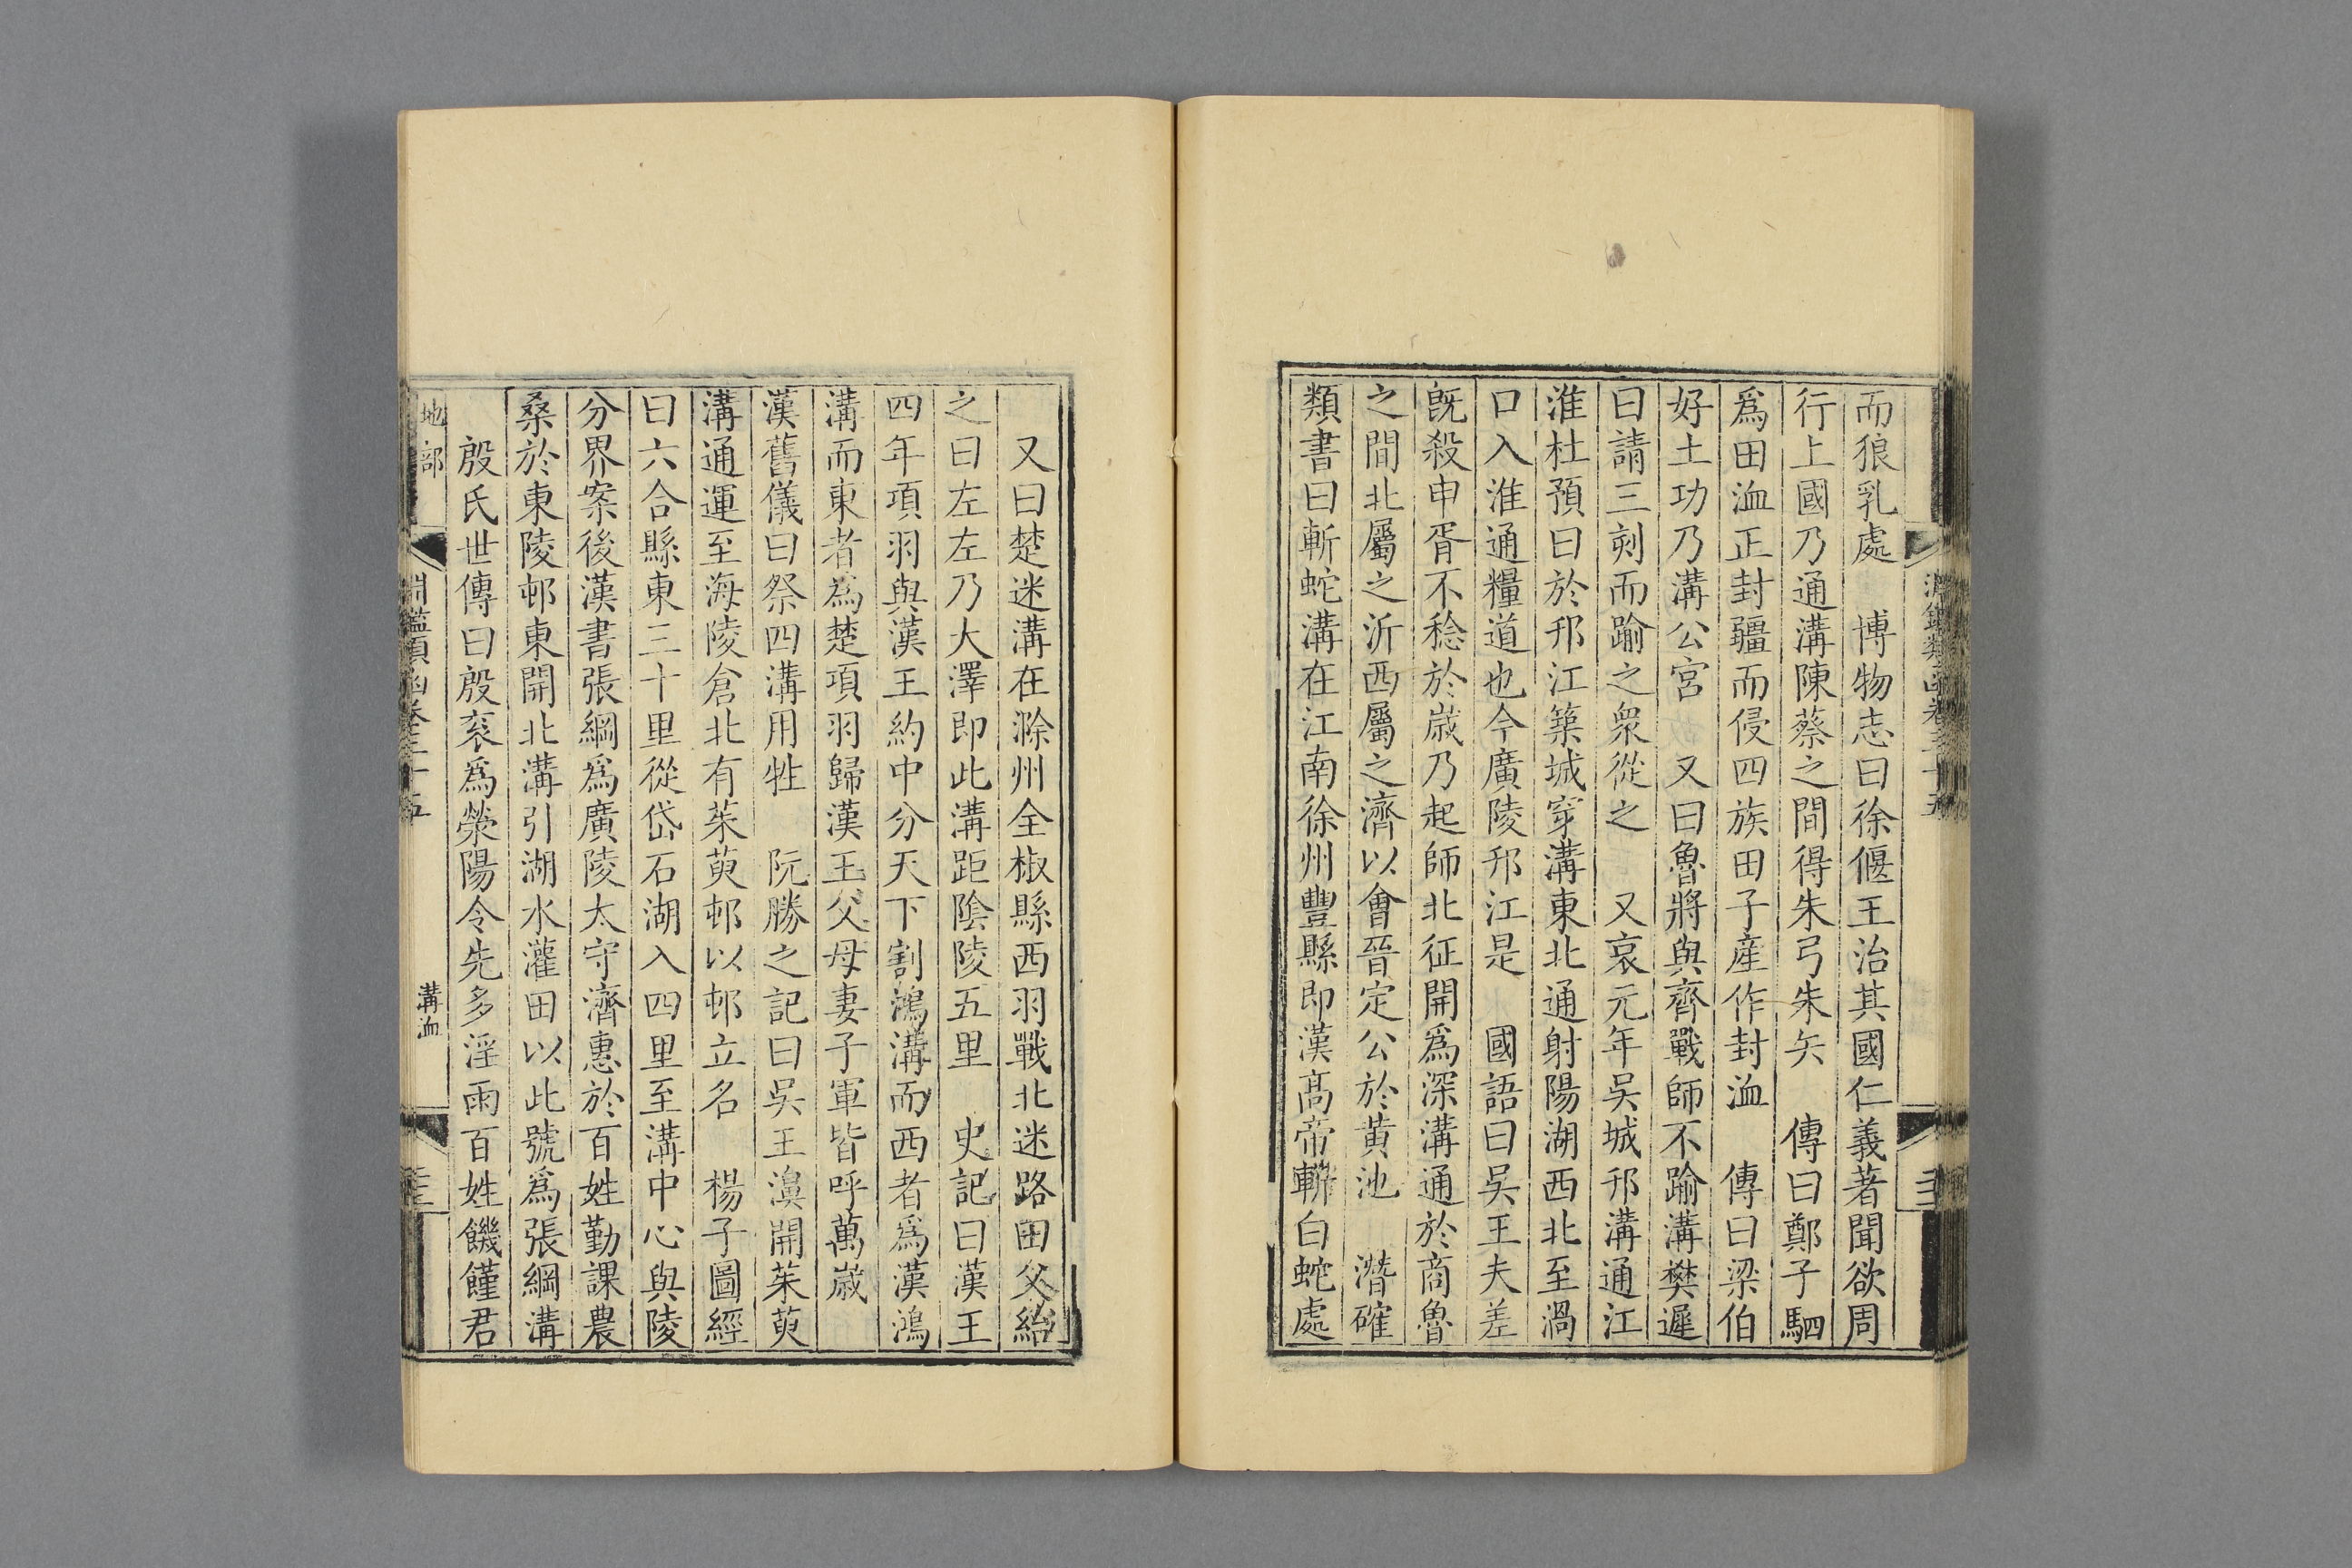 而狼乳處　博物志曰徐偃王治其國仁義著聞欲周
行上國乃通溝陳蔡之間得朱弓朱矢　傳曰鄭子駟
爲田洫正封疆而侵四族田子産作封洫　傳曰梁伯
好土功乃溝公宮　又曰魯將與齊戰師不踰溝樊遲
曰請三刻而踰之衆從之　又哀元年吳城邗溝通江
淮杜預曰於邗江築城穿溝東北通射陽湖西北至渦
口入淮通糧道也今廣陵邗江是　國語曰吳王夫差
既殺申胥不稔於歲乃起師北征開爲深溝通於商魯
之間北屬之沂西屬之濟以會晉定公於黄池　潛確
類書曰斬蛇溝在江南徐州豐縣即漢髙帝斬白蛇處
又曰楚迷溝在滁州全椒縣西羽戰北迷路田父紿
之曰左左乃大澤即此溝距陰陵五里　史記曰漢王
四年項羽與漢王約中分天下割鴻溝而西者爲漢鴻
溝而東者爲楚項羽歸漢王父母妻子軍皆呼萬歲
漢舊儀曰祭四溝用牲　阮勝之記曰吳王濞開茱萸
溝通運至海陵倉北有茱萸邨以邨立名　楊子圖經
曰六合縣東三十里從岱石湖入四里至溝中心與陵
分界案後漢書張綱爲廣陵太守濟惠於百姓勤課農
桑於東陵邨東開北溝引湖水灌田以此號爲張綱溝
殷氏世傳曰殷裦爲滎陽令先多淫雨百姓饑饉君
地部　淵鑑類函卷三十五　溝洫